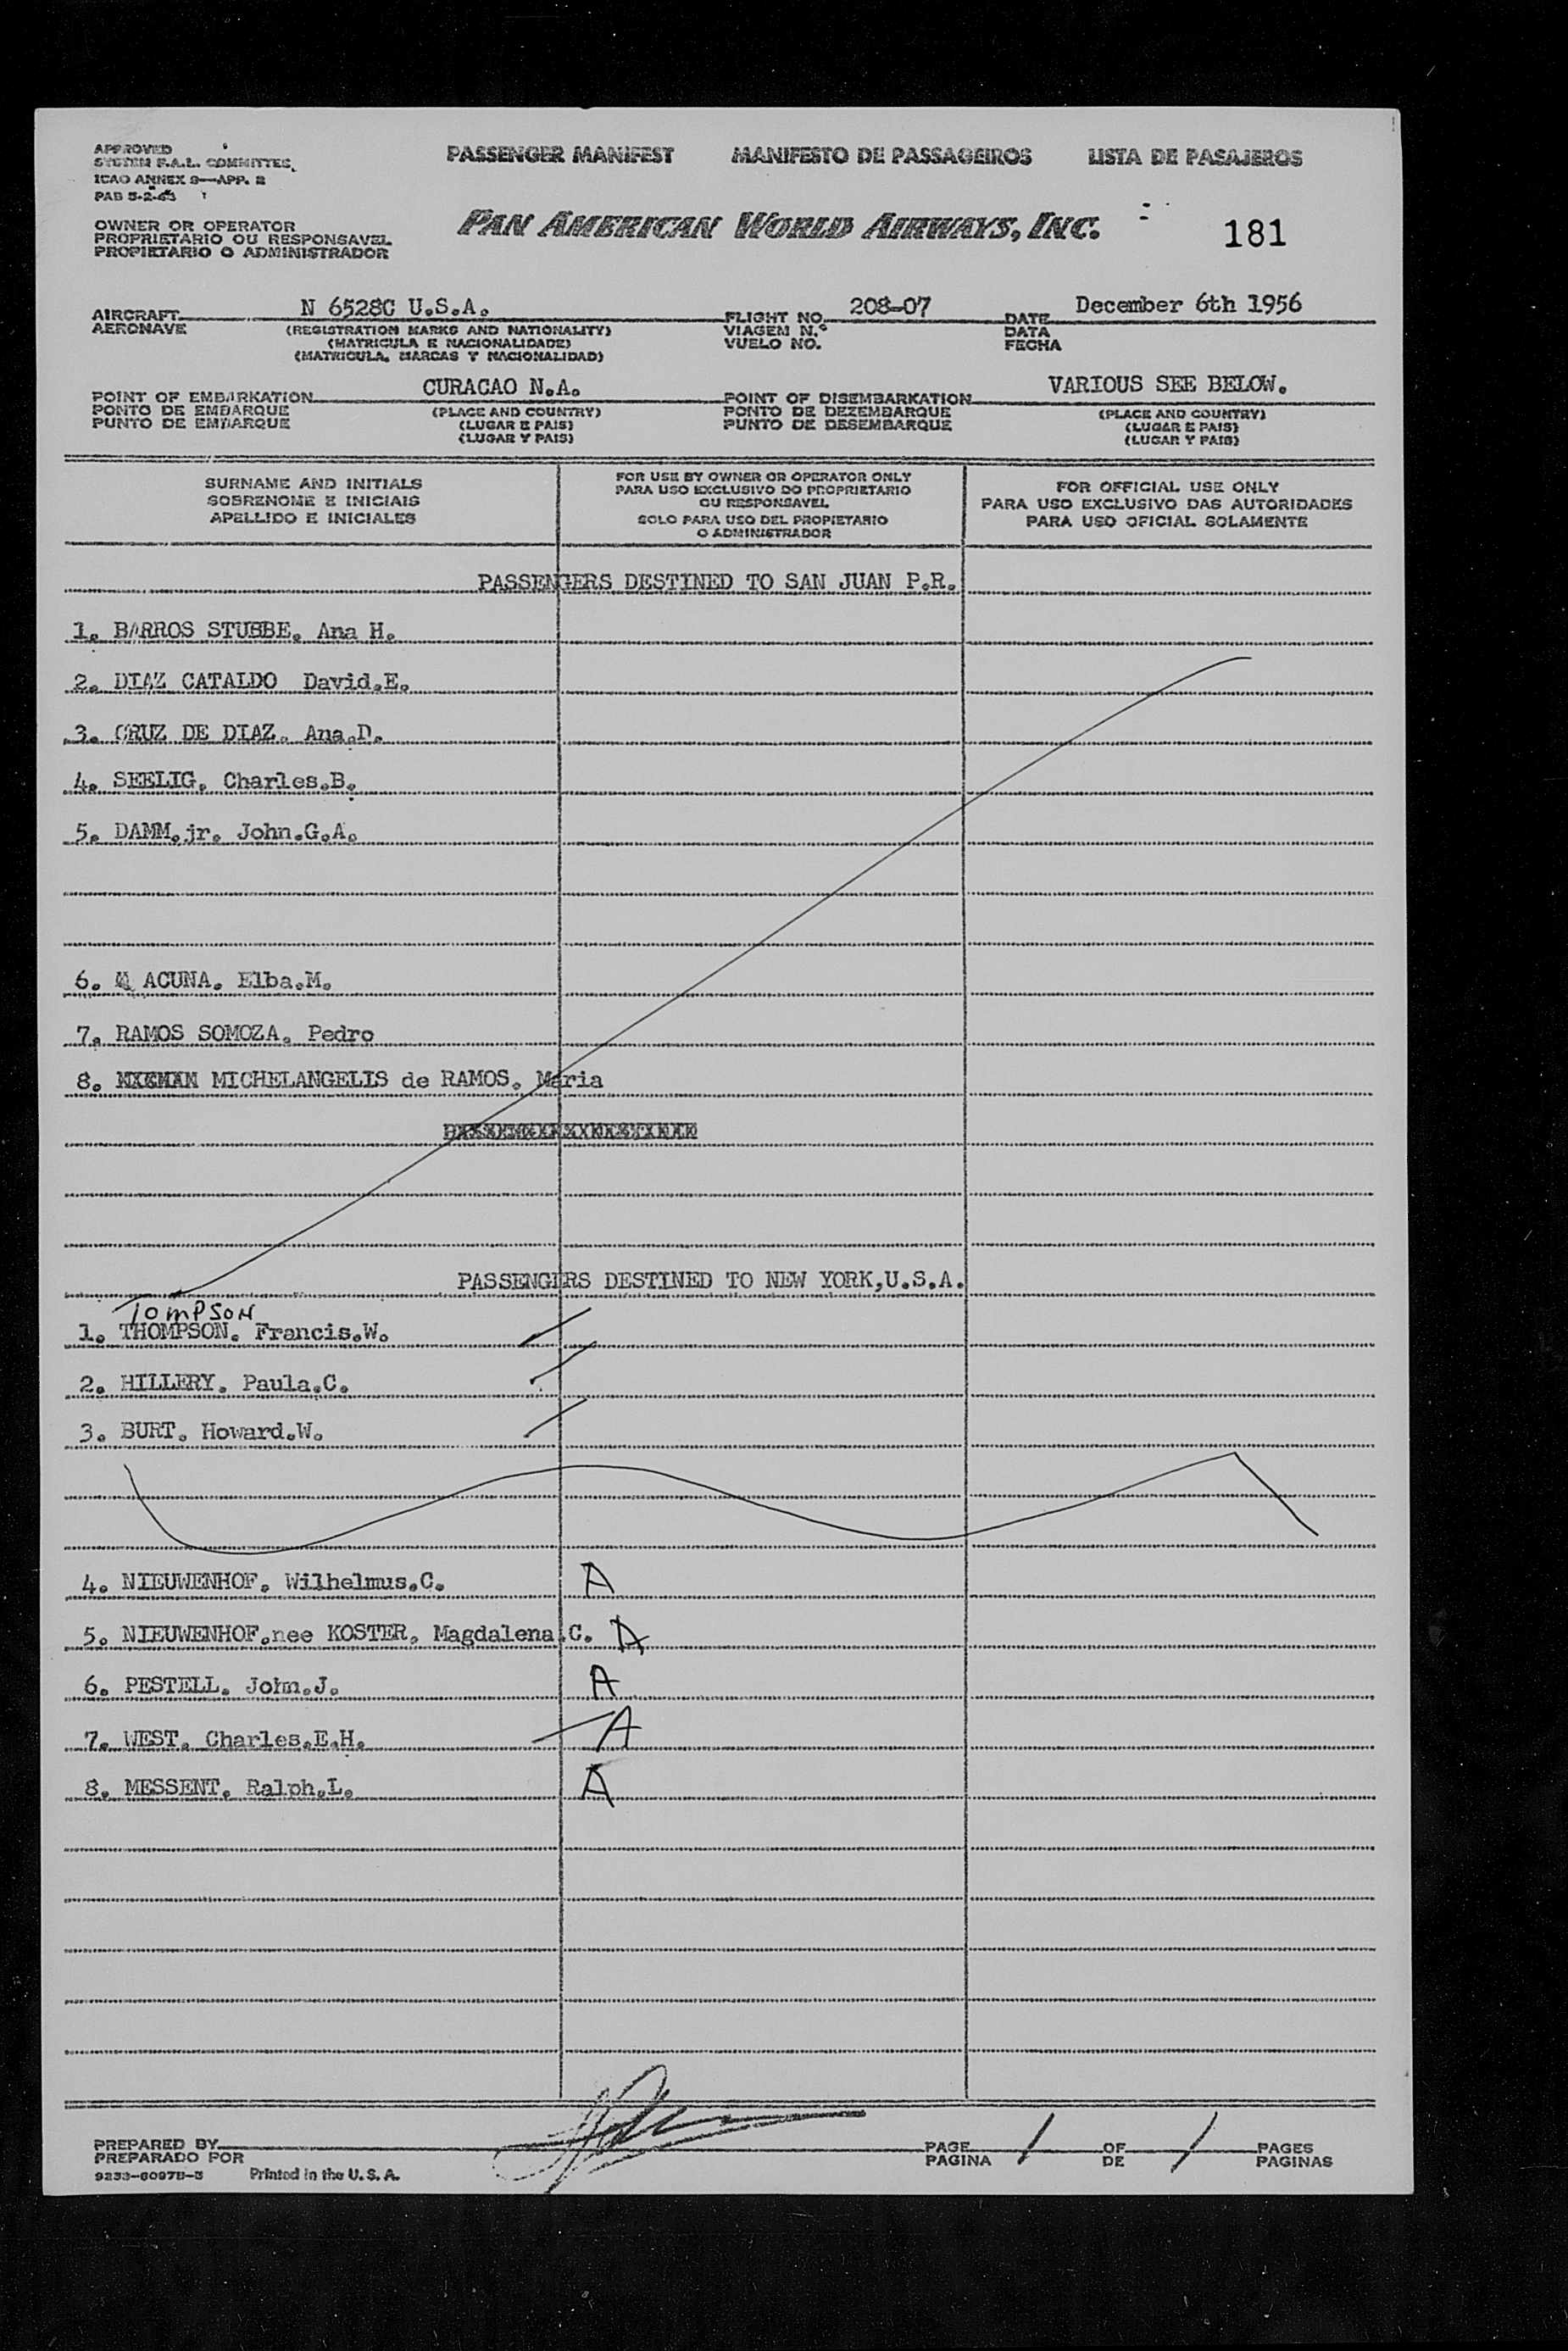 APPROVED
SYSTEM F.A.L. COMMITTEE
ICAO ANNEX 9—APP. 2
PAB 5-2-63
PASSENGER MANIFEST MANIFESTO DE PASSAGEIROS LISTA DE PASAJEROS
OWNER OR OPERATOR
PROPRIETARIO OU RESPONSAVEL
PROPIETARIO O ADMINISTRADOR
PAN AMERICAN WORLD AIRWAYS, INC.
181
AIRCRAFT N 6528C U.S.A. FLIGHT NO. 208-07 DATE December 6th 1956
AERONAVE (REGISTRATION MARKS AND NATIONALITY) VIAGEM N.º DATA
(MATRICULA E NACIONALIDADE) VUELO NO. FECHA
(MATRICULA, MARCAS Y NACIONALIDAD)
POINT OF EMBARKATION CURACAO N.A. POINT OF DISEMBARKATION VARIOUS SEE BELOW.
PONTO DE EMBARQUE (PLACE AND COUNTRY) PONTO DE DEZEMBARQUE (PLACE AND COUNTRY)
PUNTO DE EMBARQUE (LUGAR E PAIS) PUNTO DE DESEMBARQUE (LUGAR E PAIS)
(LUGAR Y PAIS) (LUGAR Y PAIS)
SURNAME AND INITIALS
SOBRENOME E INICIAIS
APELLIDO E INICIALES
FOR USE BY OWNER OR OPERATOR ONLY
PARA USO EXCLUSIVO DO PROPRIETARIO
OU RESPONSAVEL
SOLO PARA USO DEL PROPIETARIO
O ADMINISTRADOR
FOR OFFICIAL USE ONLY
PARA USO EXCLUSIVO DAS AUTORIDADES
PARA USO OFICIAL SOLAMENTE
PASSENGERS DESTINED TO SAN JUAN P.R.
1. BARROS STUBBE. Ana H.
2. DIAZ CATALDO David.E.
3. CRUZ DE DIAZ. Ana.D.
4. SEELIG. Charles.B.
5. DAMM.jr. John.G.A.
6. ACUNA. Elba.M.
7. RAMOS SOMOZA. Pedro
8. MICHELANGELIS de RAMOS. Maria
PASSENGERS DESTINED TO NEW YORK,U.S.A.
TOMPSON
1. THOMPSON. Francis.W.
2. HILLERY. Paula.C.
3. BURT. Howard.W.
4. NIEUWENHOF. Wilhelmus.C. A
5. NIEUWENHOF.nee KOSTER. Magdalena.C. A
6. PESTELL. John.J. A
7. WEST. Charles.E.H. A
8. MESSENT. Ralph.L. A
PREPARED BY PAGE 1 OF 1 PAGES
PREPARADO POR PAGINA DE PAGINAS
9233-6097B-5 Printed in the U. S. A.